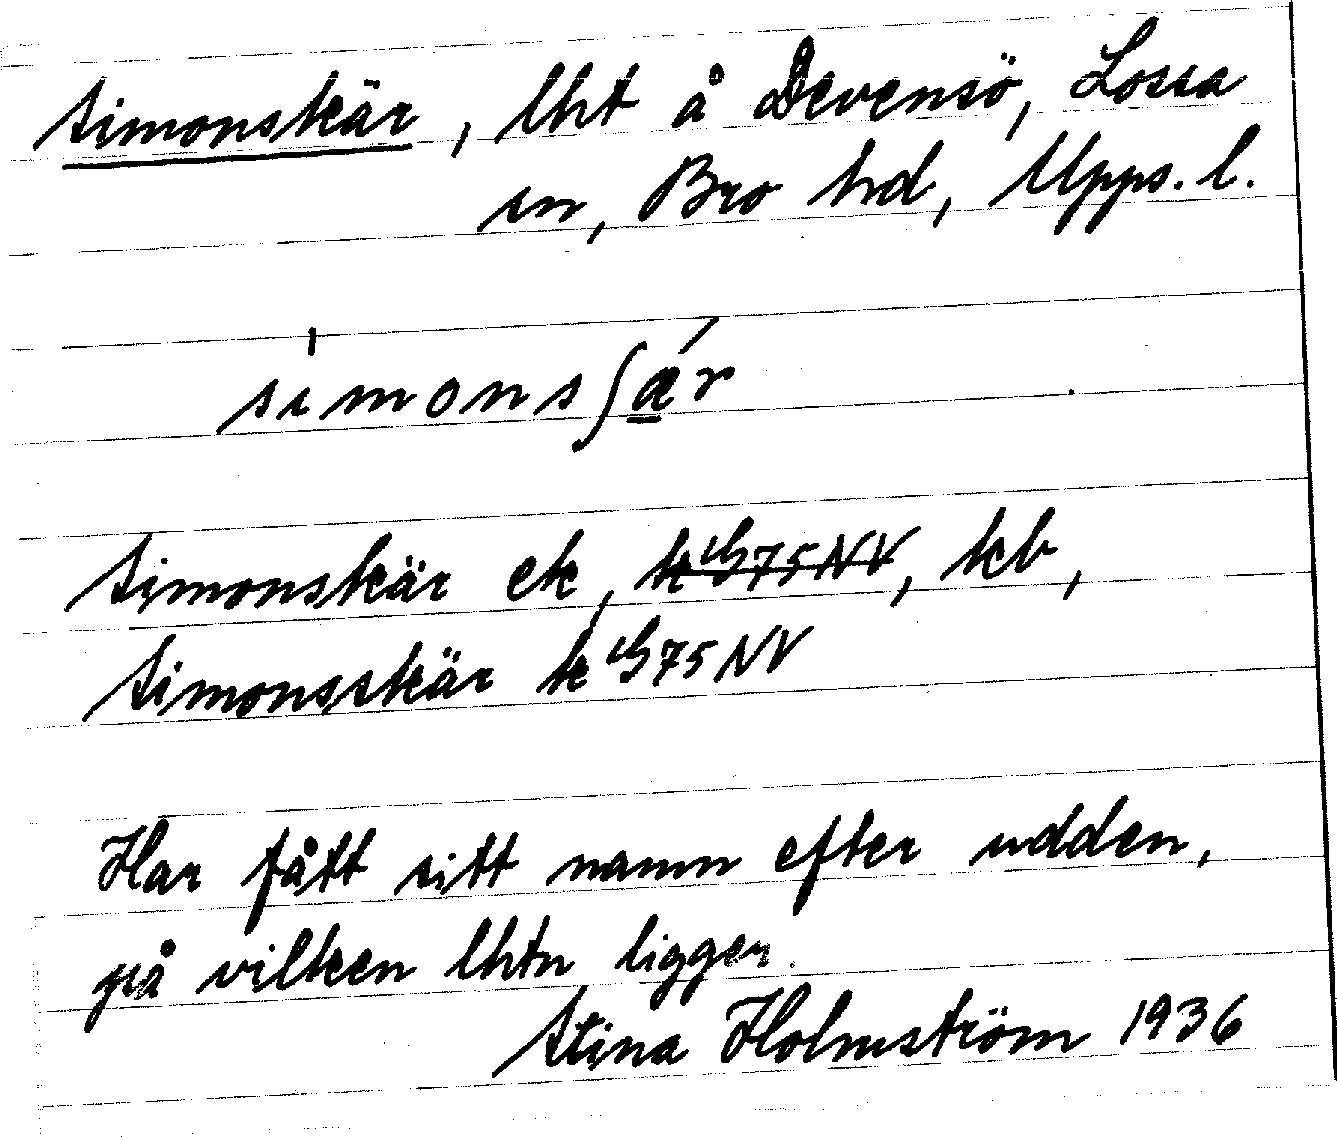 Simonskär, lht å Dävensö, Lossa
sn, Bro hd, Upps. l.
simonsʃær
Simonskär ek, k G75NV, kb,
Simonsskär k G75NV
Har fått sitt namn efter udden,
på vilken lhtn ligger.
Stina Holmström 1936